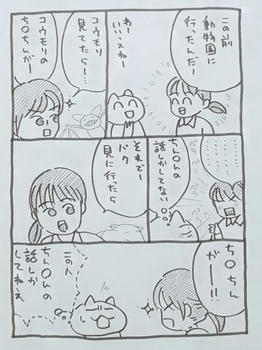 この前
動物園に
行ったんだー
わー
いいっスねー
コウモリ
見てたら…
コウモリの
ち〇ちんがー
ちん〇んの
話しかしてない
それでー
バク
見に行ったら
ち〇ちん
がー!!
この人
ちん〇んの
話しか
してねぇ